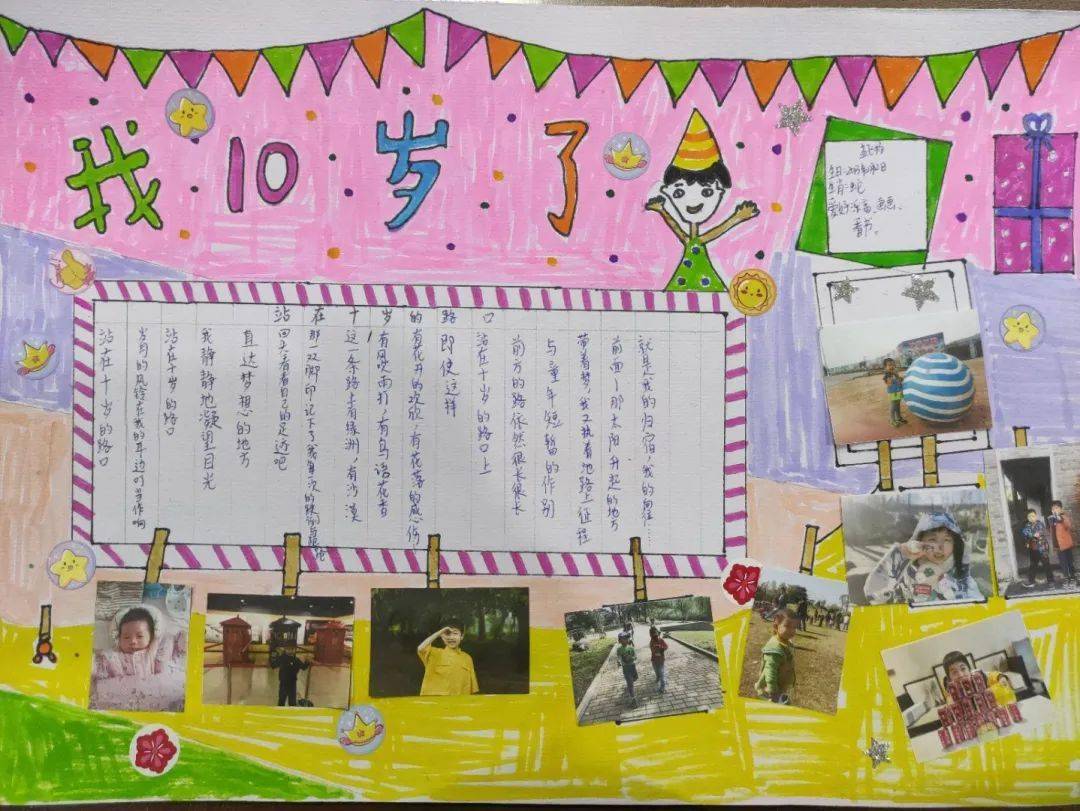 我10岁了
生肖:蛇
看书。
站在十岁的路口
站在十岁的路口
岁月的风铃在我的耳边叮当作响
站在十岁的路口
我静静地凝望目光
直达梦想的地方
回头看看自己的足迹吧
那一双脚印记下了我每一次的跌倒
这一条路上有绿洲,有沙漠
有风吹雨打,有鸟语花香
有花开的欢欣,有花落的感伤
即使这样
站在十岁的路口上
前方的路依然很长很长
与童年短暂的作别
带着梦,我又执着地踏上征程
前面,那太阳升起的地方
就是我的归宿,我的向往……